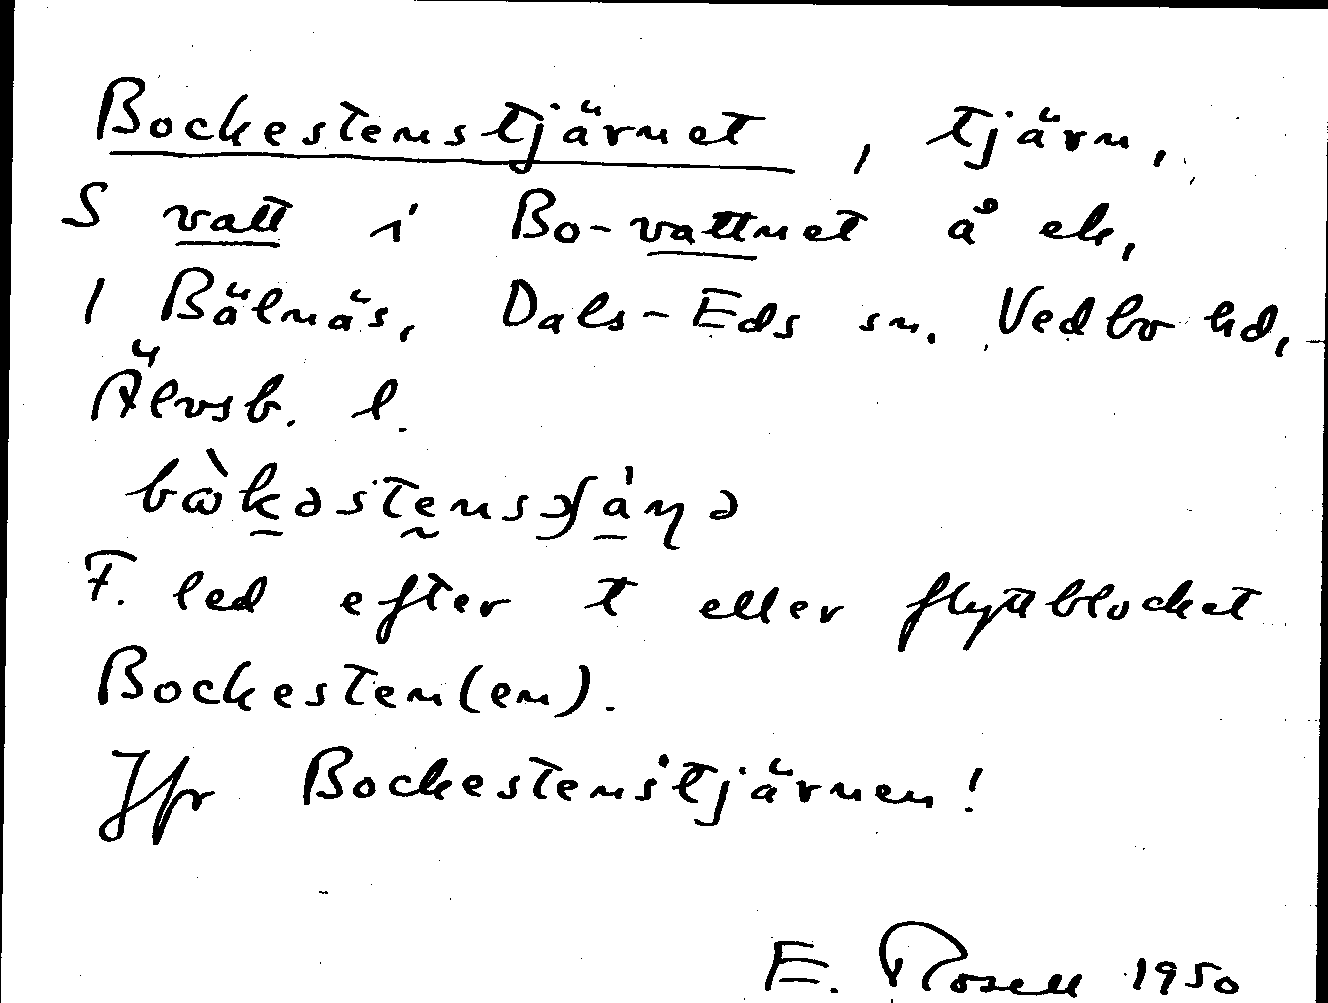 Bockestenstjärnet, tjärn,
S vatt i Bo-vattnet å ek,
1 Bälnäs, Dals-Eds sn. Vedbo hd,
Älvsb. l.
F. led efter t eller flyttblocket
Bockesten(en).
Jfr Bockestenstjärnen!
E. Rosell 1950